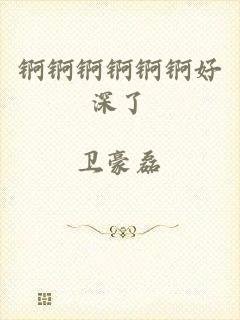 锕锕锕锕锕锕好
深了
卫豪磊